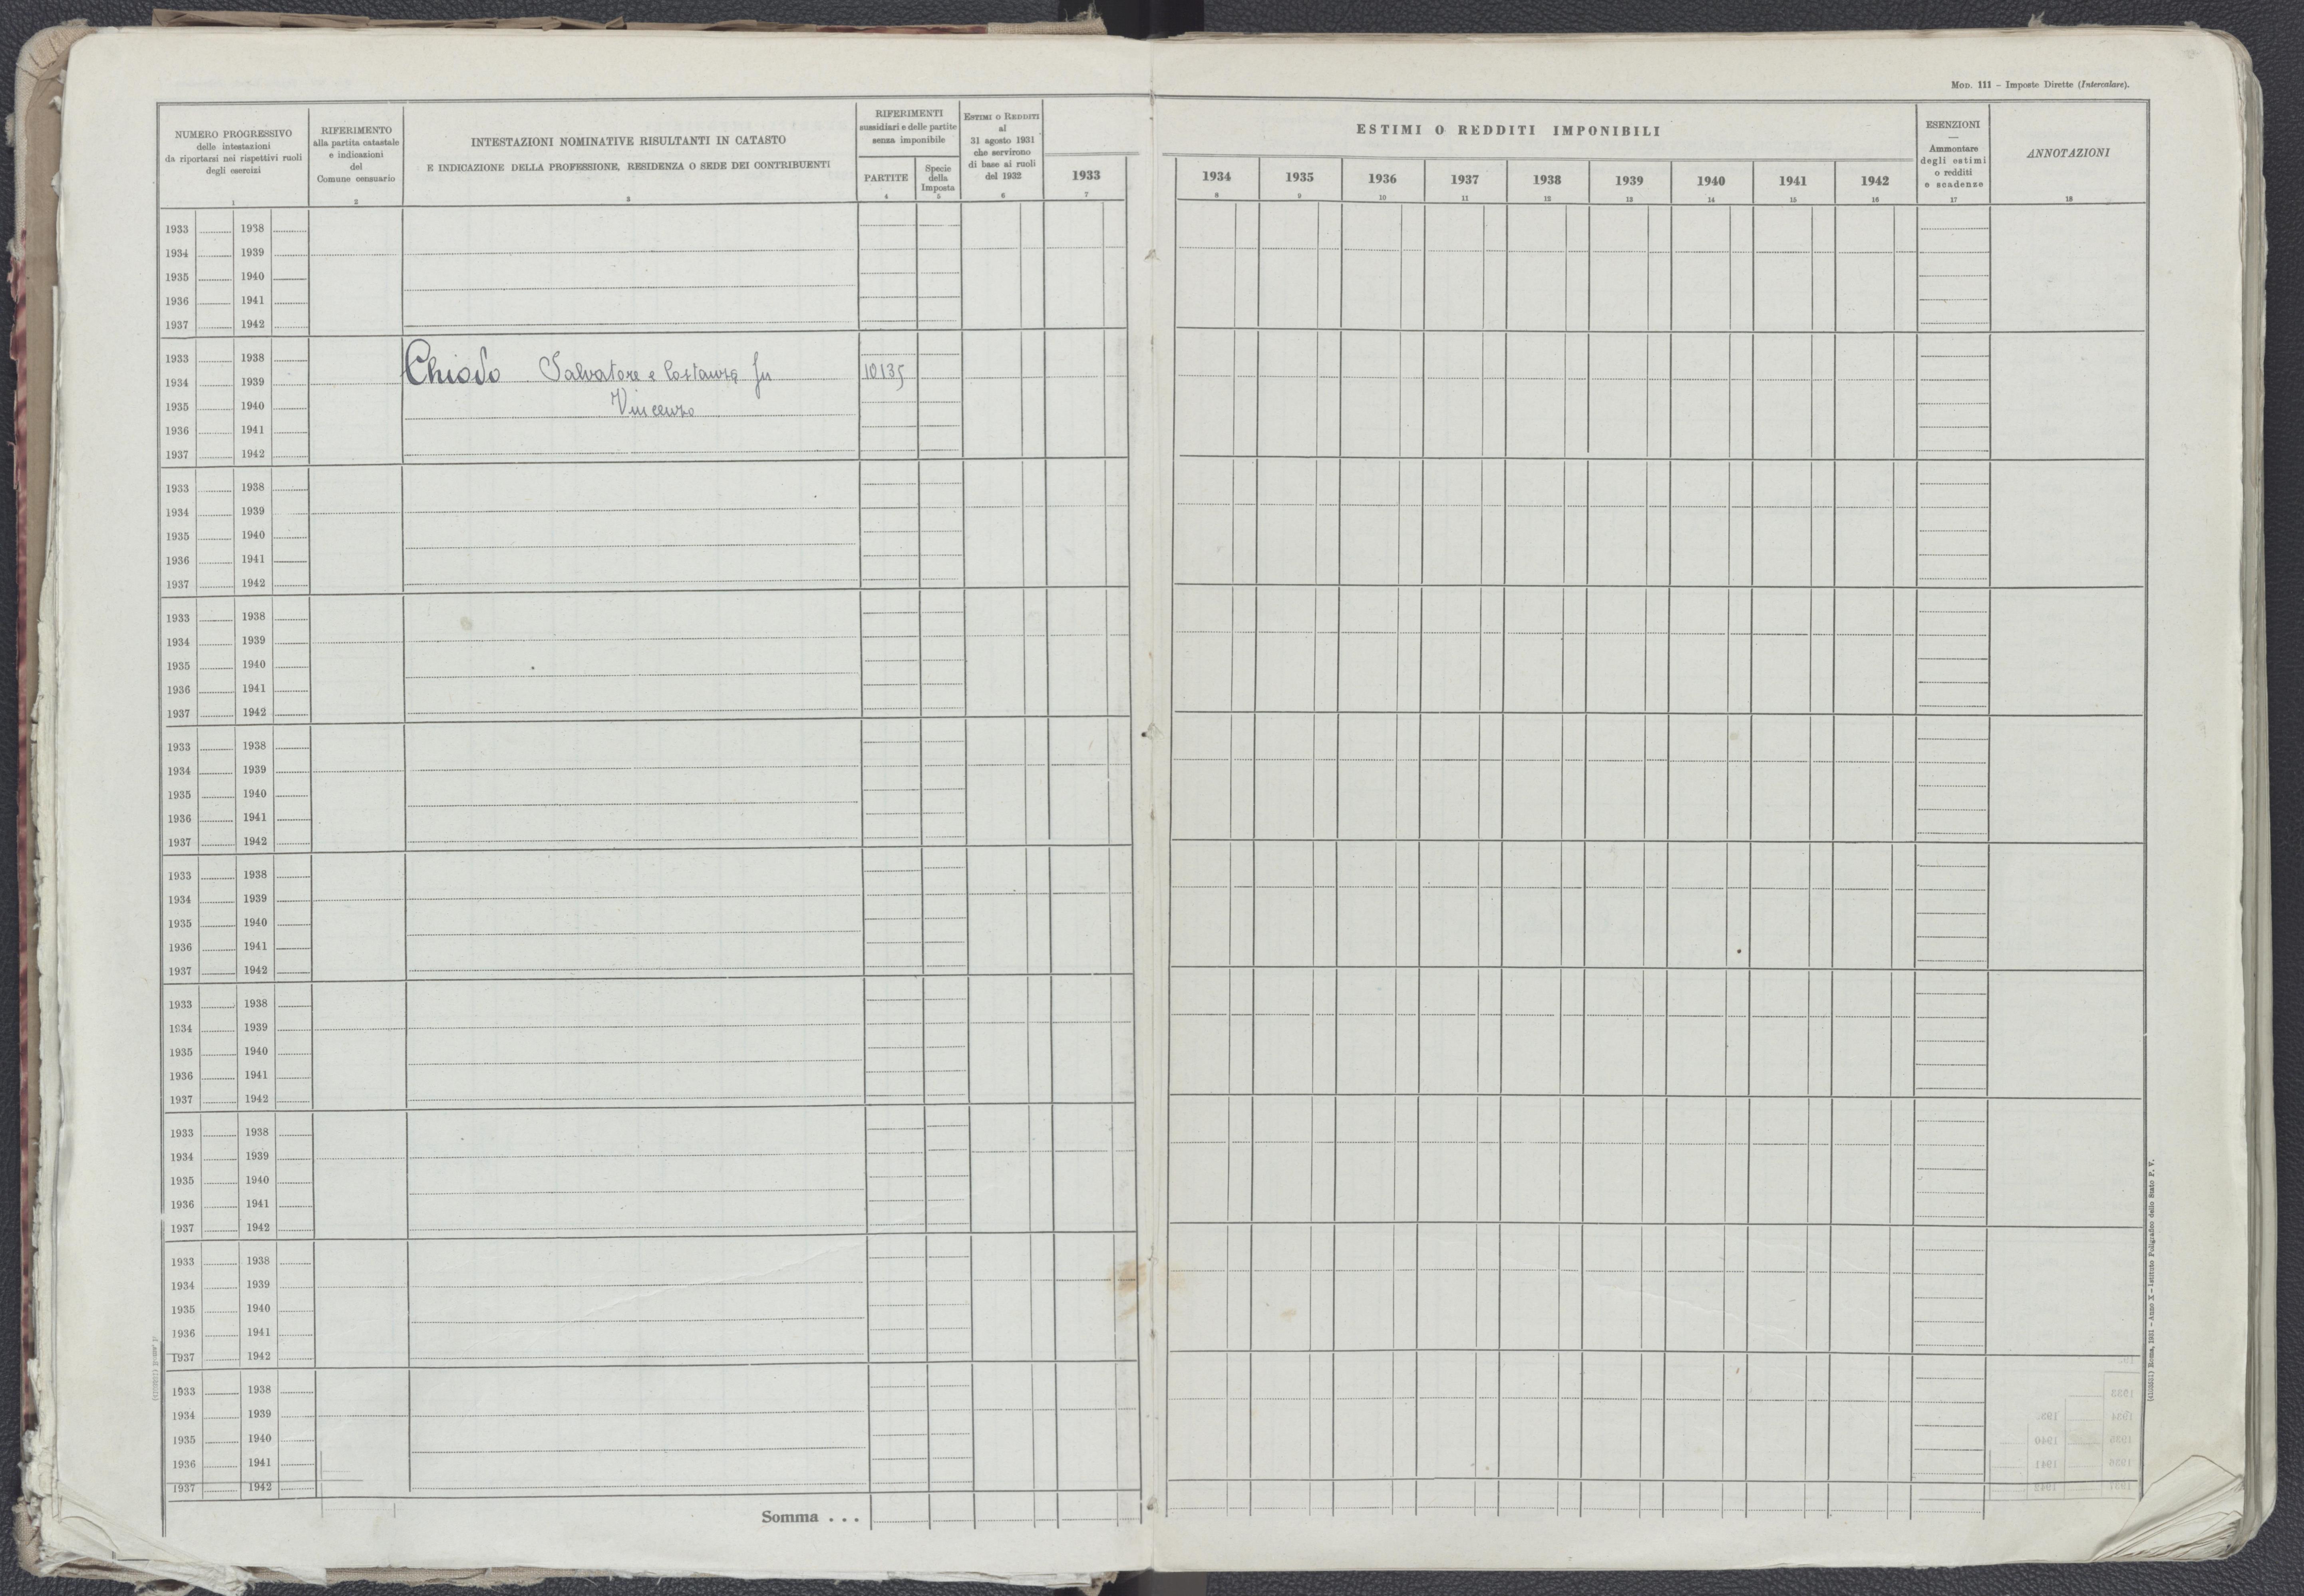 Mod. 111 – Imposte Dirette (Intercalare).
NUMERO PROGRESSIVO
delle intestazioni
da riportarsi nei rispettivi ruoli
degli esercizi
1
RIFERIMENTO
alla partita catastale
e indicazioni
del
Comune censuario
2
INTESTAZIONI NOMINATIVE RISULTANTI IN CATASTO
E INDICAZIONE DELLA PROFESSIONE, RESIDENZA O SEDE DEI CONTRIBUENTI
3
RIFERIMENTI
sussidiari e delle partite
senza imponibile
PARTITE
4
Specie
della
Imposta
5
Estimi o Redditi
al
31 agosto 1931
che servirono
di base ai ruoli
del 1932
6
1933
7
ESTIMI O REDDITI IMPONIBILI
1934 1935 1936 1937 1938 1939 1940 1941 1942
8 9 10 11 12 13 14 15 16
ESENZIONI
—
Ammontare
degli estimi
o redditi
e scadenze
17
ANNOTAZIONI
18
1933 1938
1934 1939
1935 1940
1936 1941
1937 1942
1933 1938
Chiodo Salvatore e Costanza fu 10135
1934 1939
Vincenzo
1935 1940
1936 1941
1937 1942
1933 1938
1934 1939
1935 1940
1936 1941
1937 1942
1933 1938
1934 1939
1935 1940
1936 1941
1937 1942
1933 1938
1934 1939
1935 1940
1936 1941
1937 1942
1933 1938
1934 1939
1935 1940
1936 1941
1937 1942
1933 1938
1934 1939
1935 1940
1936 1941
1937 1942
1933 1938
1934 1939
1935 1940
1936 1941
1937 1942
1933 1938
1934 1939
1935 1940
1936 1941
1937 1942
1933 1938
1934 1939
1935 1940
1936 1941
1937 1942
Somma . . .
Roma, 1931 – Anno X – Istituto Poligrafico dello Stato P. V.